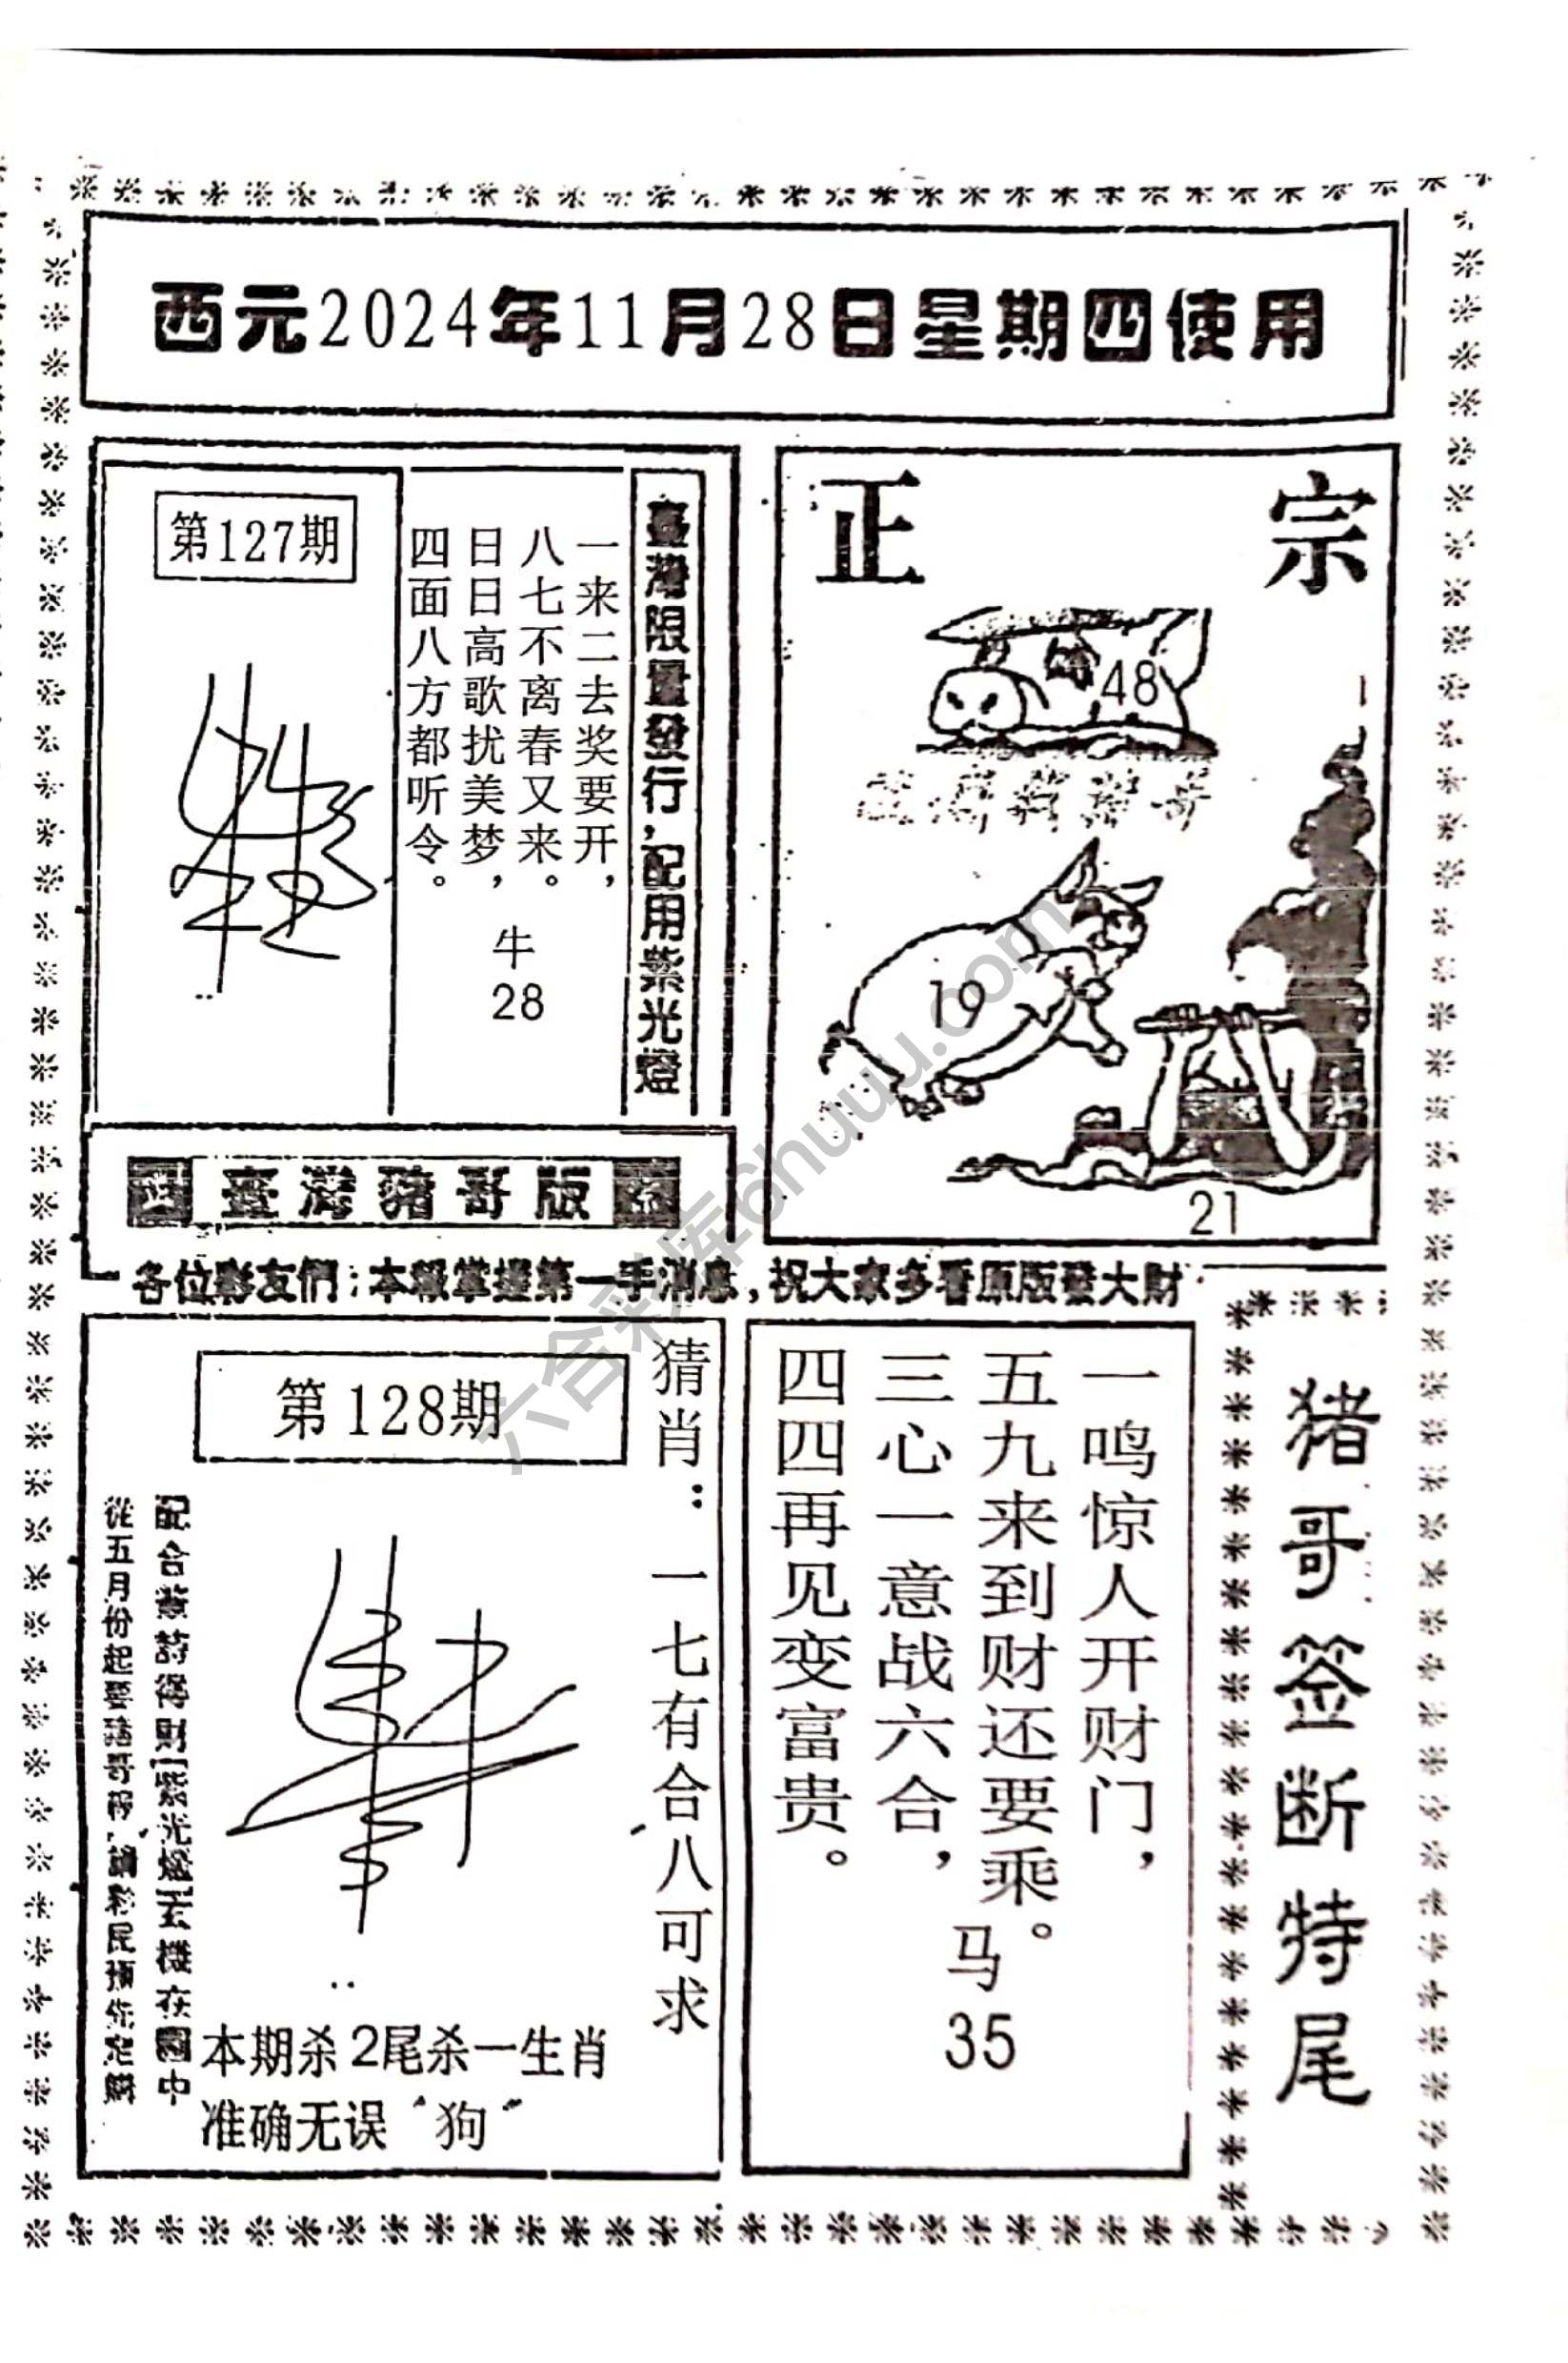 西元2024年11月28日星期四使用
第127期
臺灣限量發行,配用紫光燈
一来二去奖要开,
八七不离春又来。
日日高歌扰美梦,
四面八方都听令。
牛
28
正宗
48
19
21
臺灣豬哥版
各位彩友們:本報掌握第一手消息,祝大家多看原版發大財
第128期
猜肖:一七有合八可求
從五月份起要豬哥報,請彩民預先定購
本期杀2尾杀一生肖
准确无误“狗”
一鸣惊人开财门,
五九来到财还要乘。
三心一意战六合,
四四再见变富贵。
马
35
猪哥签断特尾
六合彩库6huuu.com